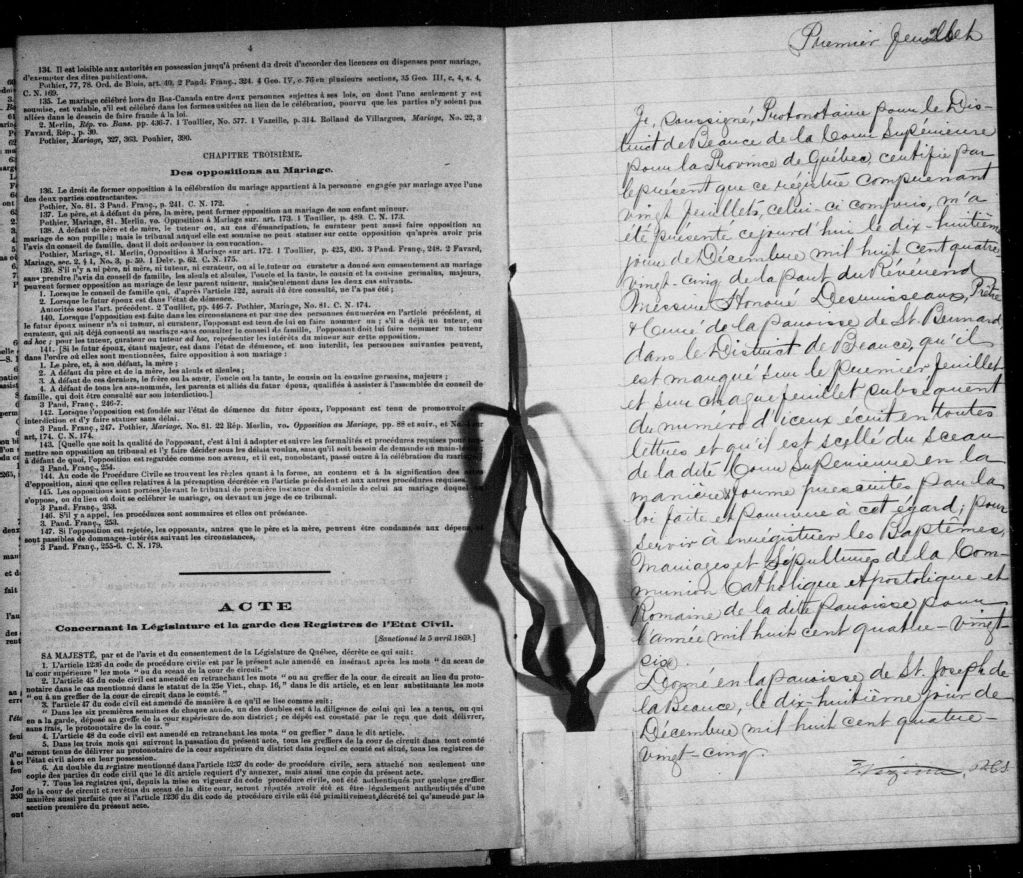 4
134. Il est loisible aux autorités en possession jusqu'à présent du droit d'accorder des licences ou dispenses pour mariage,
d'exempter des dites publications.
Pothier, 77, 78. Ord. de Blois, art. 40. 2 Pand. Franç., 324. 4 Geo. IV, c. 76 en plusieurs sections, 35 Geo. III, c, 4, s. 4,
C. N. 169.
135. Le mariage célébré hors du Bas-Canada entre deux personnes sujettes à ses lois, ou dont l'une seulement y est
soumise, est valable, s'il est célébré dans les formes usitées au lieu de la célébration, pourvu que les parties n'y soient pas
allées dans le dessein de faire fraude à la loi.
2. Merlin, Rép. vo. Bans. pp. 436-7. 1 Toullier, No. 577. 1 Vazeille, p. 314. Rolland de Villargues, Mariage, No. 22, 3
Favard, Rép., p. 30.
Pothier, Mariage, 327, 363. Pouhier, 390.
CHAPITRE TROISIÈME.
Des oppositions au Mariage.
136. Le droit de former opposition à la célébration du mariage appartient à la personne engagée par mariage avec l'une
des deux parties contractantes.
Pothier, No. 81. 3 Pand. Franç., p. 241. C. N. 172.
137. Le père, et à défaut du père, la mère, peut former opposition au mariage de son enfant mineur.
Pothier, Mariage, 81. Merlin. vo. Opposition à Mariage sur. art. 173. 1 Toullier, p. 489. C. N. 173.
138. A défaut de père et de mère, le tuteur ou, au cas d'émancipation, le curateur peut aussi faire opposition au
mariage de son pupille; mais le tribunal auquel elle est soumise ne peut statuer sur cette opposition qu'après avoir pris
l'avis du conseil de famille, dont il doit ordonner la convocation.
Pothier, Mariage, 81. Merlin, Opposition à Mariage sur art. 172. 1 Toullier, p. 425, 490. 3 Pand. Franç., 248. 2 Favard,
Mariage, sec. 2, § 4, No. 3, p. 59. 1 Delv. p. 62. C. N. 175.
139. S'il n'y a ni père, ni mère, ni tuteur, ni curateur, ou si le tuteur ou curateur a donné son consentement au mariage
sans prendre l'avis du conseil de famille, les aïeuls et aïeules, l'oncle et la tante, le cousin et la cousine germains, majeurs,
peuvent former opposition au mariage de leur parent mineur, mais seulement dans les deux cas suivants.
1. Lorsque le conseil de famille qui, d'après l'article 122, aurait dû être consulté, ne l'a pas été;
2. Lorsque le futur époux est dans l'état de démence.
Autorités sous l'art. précédent. 2 Toullier, pp. 446-7. Pothier, Mariage, No. 81. C. N. 174.
140. Lorsque l'opposition est faite dans les circonstances et par une des personnes énumérées en l'article précédent, si
le futur époux mineur n'a ni tuteur, ni curateur, l'opposant est tenu de lui en faire nommer un; s'il a déjà un tuteur, ou
curateur, qui ait déjà consenti au mariage sans consulter le conseil de famille, l'opposant doit lui faire nommer un tuteur
ad hoc; pour les tuteur, curateur ou tuteur ad hoc, représenter les intérêts du mineur sur cette opposition.
141. [Si le futur époux, étant majeur, est dans l'état de démence, et non interdit, les personnes suivantes peuvent,
dans l'ordre où elles sont mentionnées, faire opposition à son mariage:
1. Le père, et, à son défaut, la mère;
2. A défaut du père et de la mère, les aïeuls et aïeules;
3. A défaut de ces derniers, le frère ou la sœur, l'oncle ou la tante, le cousin ou la cousine germains, majeurs;
4. A défaut de tous les sus-nommés, les parents et alliés du futur époux, qualifiés à assister à l'assemblée du conseil de
famille, qui doit être consulté sur son interdiction.]
3 Pand Franç., 246-7.
142. Lorsque l'opposition est fondée sur l'état de démence du futur époux, l'opposant est tenu de promouvoir
interdiction et d'y faire statuer sans délai.
3 Pand. Franç., 247. Pothier, Mariage. No. 81. 22 Rép. Merlin, vo. Opposition au Mariage, pp. 88 et suiv., et No. sur
art, 174. C. N. 174.
143. [Quelle que soit la qualité de l'opposant, c'est à lui à adopter et suivre les formalités et procédures requises pour
mettre son opposition au tribunal et l'y faire décider sous les délais voulus, sans qu'il soit besoin de demande en main-levée
à défaut de quoi, l'opposition est regardée comme non avenu, et il est, nonobstant, passé outre à la célébration du mariage.
3 Pand. Franç., 254.
144. Au code de Procédure Civile se trouvent les règles quant à la forme, au contenu et à la signification des actes
d'opposition, ainsi que celles relatives à la péremption décrétée en l'article précédent et aux autres procédures requises.
145. Les oppositions sont portées devant le tribunal de première instance du domicile de celui au mariage duquel
s'oppose, ou du lieu où doit se célébrer le mariage, ou devant un juge de ce tribunal.
3 Pand. Franç., 253.
146. S'il y a appel, les procédures sont sommaires et elles ont préséance.
3. Pand. Franç., 253.
147. Si l'opposition est rejetée, les opposants, autres que le père et la mère, peuvent être condamnés aux dépens,
sont passibles de dommages-intérêts suivant les circonstances,
3 Pand. Franç., 255-6. C. N. 179.
ACTE
Concernant la Législature et la garde des Registres de l'Etat Civil.
[Sanctionné le 5 avril 1869.]
SA MAJESTÉ, par et de l'avis et du consentement de la Législature de Québec, décrète ce qui suit:
1. L'article 1236 du code de procédure civile est par le présent acte amendé en insérant après les mots "du sceau de
la cour supérieure" les mots "ou du sceau de la cour de circuit."
2. L'article 45 du code civil est amendé en retranchant les mots "ou au greffier de la cour de circuit au lieu du proto-
notaire dans le cas mentionné dans le statut de la 25e Vict., chap. 16," dans le dit article, et en leur substituants les mots
"ou à un greffier de la cour de circuit dans le comté."
3. l'article 47 du code civil est amendé de manière à ce qu'il se lise comme suit:
"Dans les six premières semaines de chaque année, un des doubles est à la diligence de celui qui les a tenus, ou qui
en a la garde, déposé au greffe de la cour supérieure de son district; ce dépôt est constaté par le reçu que doit délivrer,
sans frais, le protonotaire de la cour."
4. L'article 48 du code civil est amendé en retranchant les mots "ou greffier" dans le dit article.
5. Dans les trois mois qui suivront la passation du présent acte, tous les greffiers de la cour de circuit dans tout comté
seront tenus de délivrer au protonotaire de la cour supérieure du district dans lequel ce comté est situé, tous les registres de
l'état civil alors en leur possession.
6. Au double du registre mentionné dans l'article 1237 du code de procédure civile, sera attaché non seulement une
copie des parties du code civil que le dit article requiert d'y annexer, mais aussi une copie du présent acte.
7. Tous les registres qui, depuis la mise en vigueur du code procédure civile, ont été authentiqués par quelque greffier
de la cour de circuit et revêtus du sceau de la dite cour, seront réputés avoir été et être légalement authentiqués d'une
manière aussi parfaite que si l'article 1236 du dit code de procédure civile eût été primitivement décrété tel qu'amendé par la
section première du présent acte.
Premier feuillet
Je, soussigné, Protonotaire pour le Dis-
trict de Beauce de la Cour Supérieure
pour la Province de Québec, certifie par
le présent que ce régistre comprenant
vingt feuillets, celui-ci compris, m'a
été présenté ce jourd'hui le dix-huitième
jour de Décembre mil huit Cent quatre
vingt-cinq de la part du Révérend
Messire Honoré Desruisseaux, Prêtre
& Curé de la paroisse de St Bernard,
dans le District de Beauce, qu'il
est marqué sur le premier feuillet
et sur chaque feuillet subséquent
du numéro d'iceux écrit en toutes
lettres et qu'il est scellé du sceau
de la dite Cour Supérieure en la
manière & forme prescrites par la
loi faite et pourvue à cet égard, pour
servir à enregistrer les Baptêmes,
Mariages et Sépultures de la Com-
munion Catholique Apostolique et
Romaine de la dite paroisse pour
l'année mil huit cent quatre-vingt-
six
Donné en la paroisse de St. Joseph de
la Beauce, le dix-huitième jour de
Décembre mil huit cent quatre-
vingt-cinq
Vézina, P.C.S.